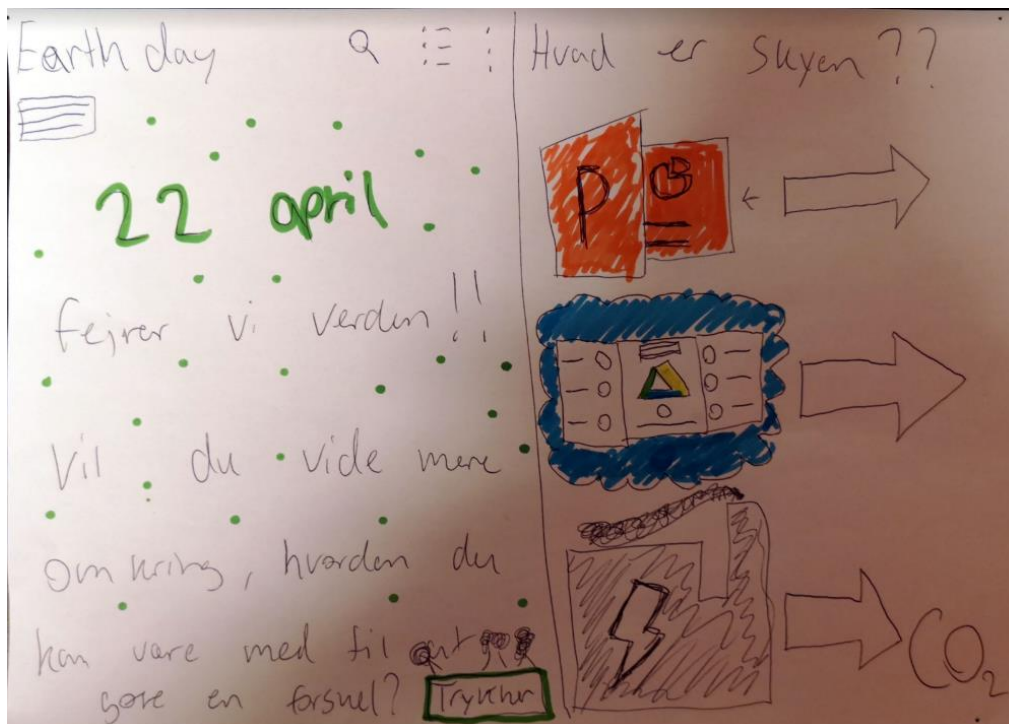 Earth day
22 april
fejrer vi verden!!
Vil du vide mere
omkring, hvordan du
kan være med til at
gøre en forskel?
Tryk her
Hvad er skyen??
P
CO₂